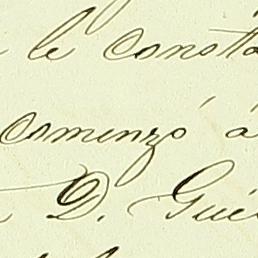 le consta
comenzó á
D. Gué